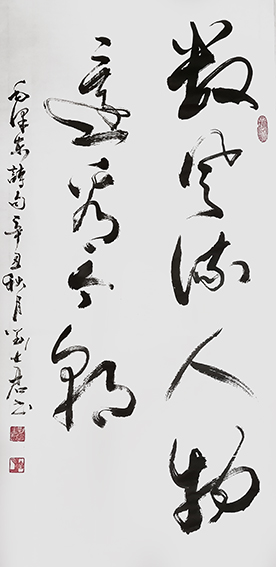 数风流人物
还看今朝
毛泽东诗句辛丑秋月